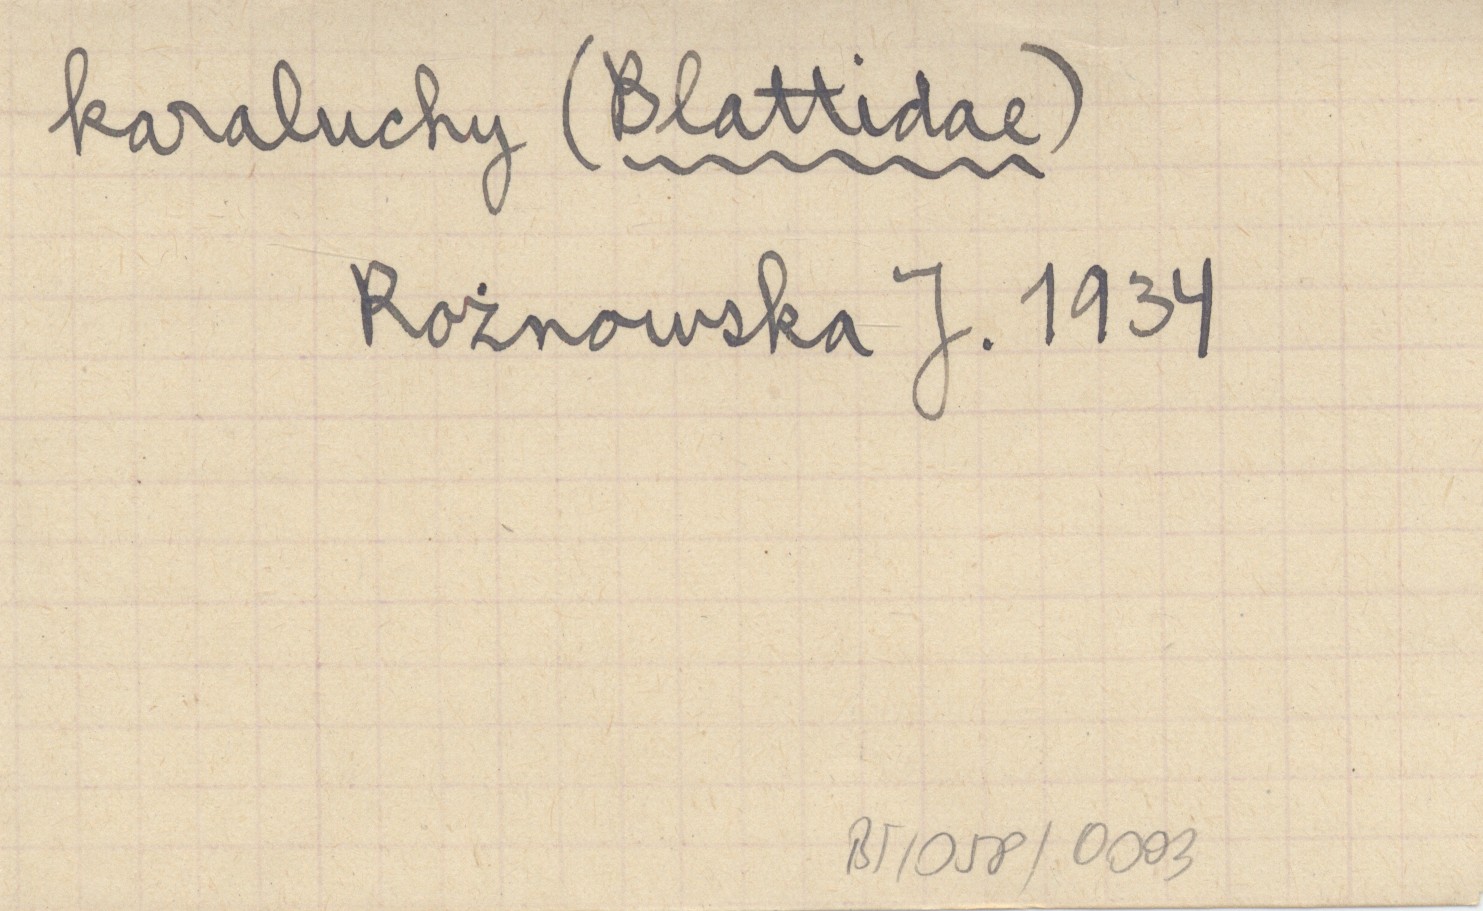 karaluchy (Blattidae)
Rożnowska J. 1934
BT/058/0093